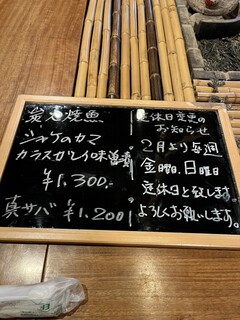 炭火焼魚
ジャケのカマ
カラスガレイ味噌漬
¥1,300.-
真サバ ¥1,200
定休日変更の
お知らせ
2月より毎週
金曜日.日曜日
定休日と致します。
よろしくお願いします。